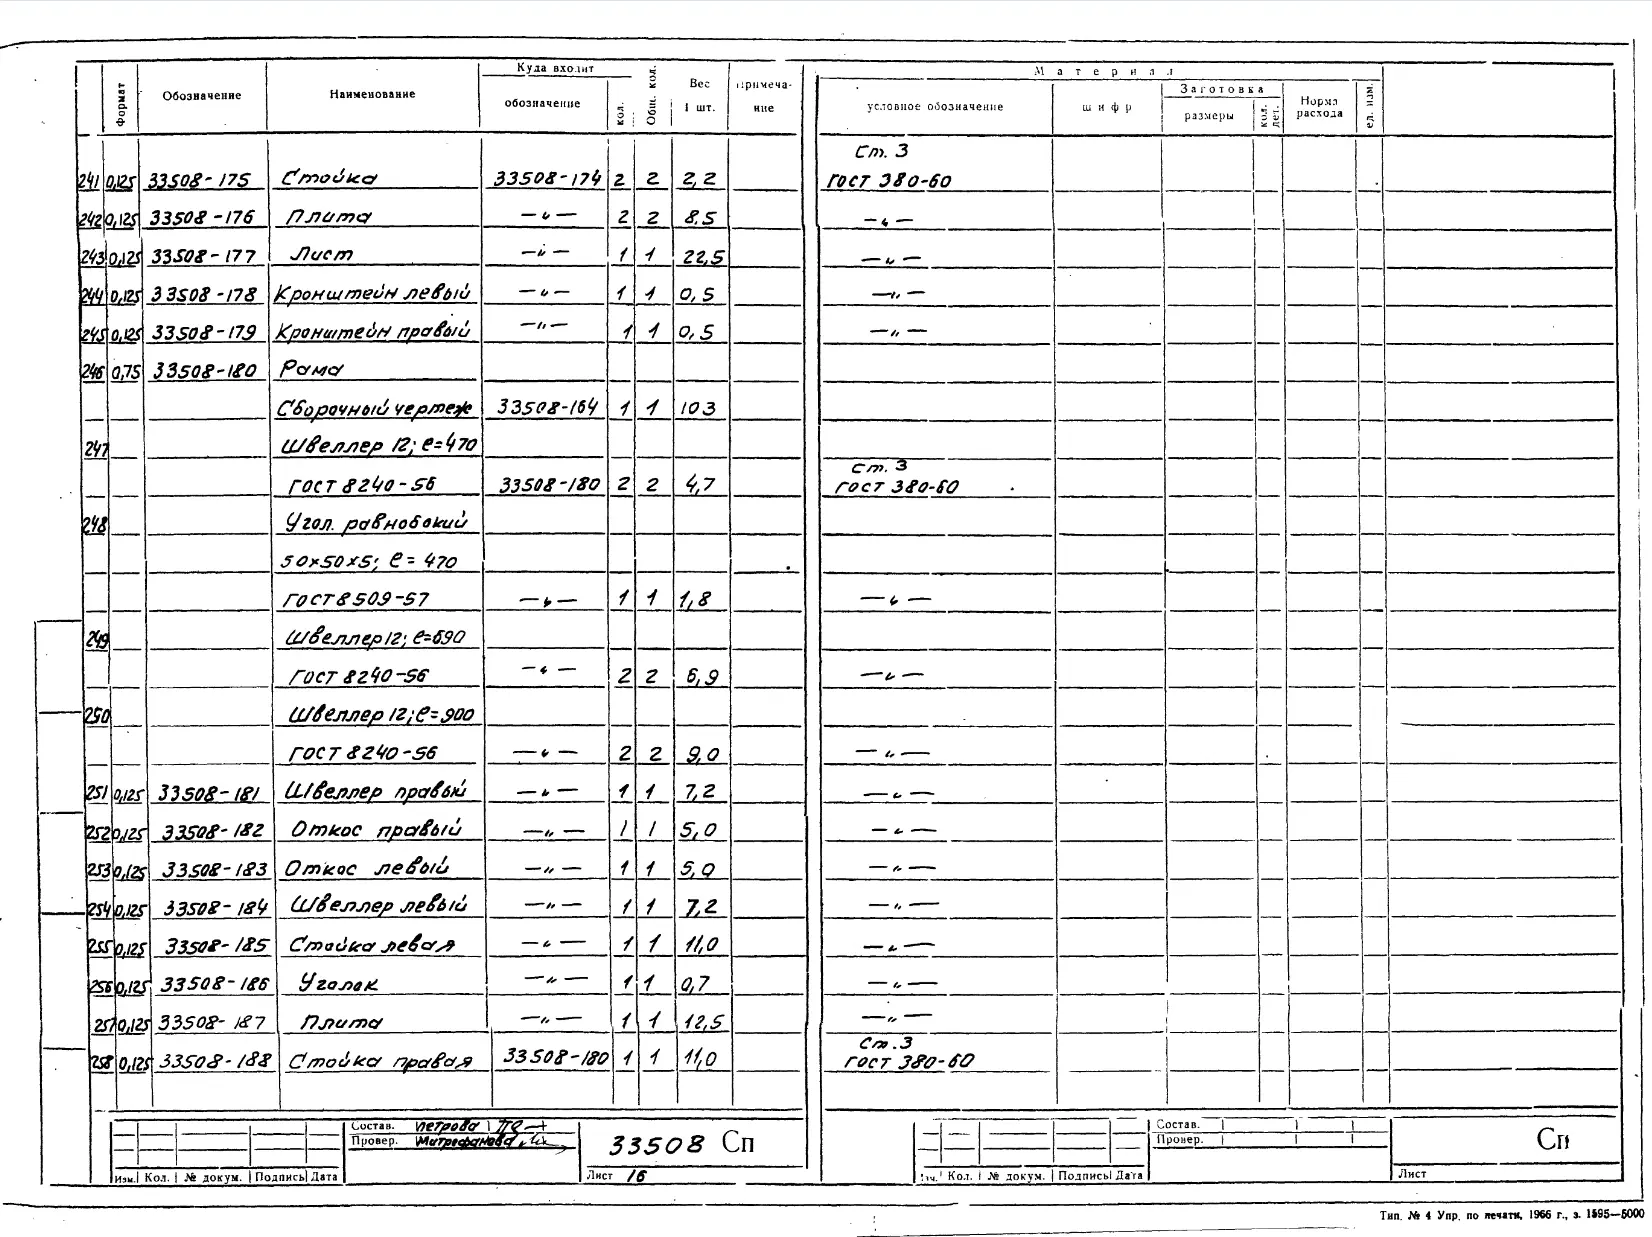 Формат Обозначение Наименование Куда входит обозначение кол. Общ. кол. Вес 1 шт. Примечание Материал условное обозначение шифр Заготовка размеры кол. дет. Норма расхода ед. изм.
Ст. 3
241 0,125 33508-175 Стойка 33508-174 2 2 2,2 ГОСТ 380-60
242 0,125 33508-176 Плита —"— 2 2 8,5 —"—
243 0,125 33508-177 Лист —"— 1 1 22,5 —"—
244 0,125 33508-178 Кронштейн левый —"— 1 1 0,5 —"—
245 0,125 33508-179 Кронштейн правый —"— 1 1 0,5 —"—
246 0,75 33508-180 Рама
Сборочный чертеж 33508-164 1 1 103
247 Швеллер 12; ℓ=470
Ст. 3
ГОСТ 8240-56 33508-180 2 2 4,7 ГОСТ 380-60
248 Угол. равнобокий
50x50x5; ℓ=470
ГОСТ 8509-57 —"— 1 1 1,8 —"—
249 Швеллер 12; ℓ=690
ГОСТ 8240-56 —"— 2 2 6,9 —"—
250 Швеллер 12; ℓ=900
ГОСТ 8240-56 —"— 2 2 9,0 —"—
251 0,125 33508-181 Швеллер правый —"— 1 1 7,2 —"—
252 0,125 33508-182 Откос правый —"— 1 1 5,0 —"—
253 0,125 33508-183 Откос левый —"— 1 1 5,0 —"—
254 0,125 33508-184 Швеллер левый —"— 1 1 7,2 —"—
255 0,125 33508-185 Стойка левая —"— 1 1 11,0 —"—
256 0,125 33508-186 Уголок —"— 1 1 0,7 —"—
257 0,125 33508-187 Плита —"— 1 1 12,5 —"—
Ст. 3
258 0,125 33508-188 Стойка правая 33508-180 1 1 11,0 ГОСТ 380-60
Состав. Петрова
Провер. Митрофанова
33508 Сп
Изм. Кол. № докум. Подпись Дата Лист 16
Состав.
Провер.
Сп
Изм. Кол. № докум. Подпись Дата Лист
Тип. № 4 Упр. по печати, 1966 г., з. 1595—5000